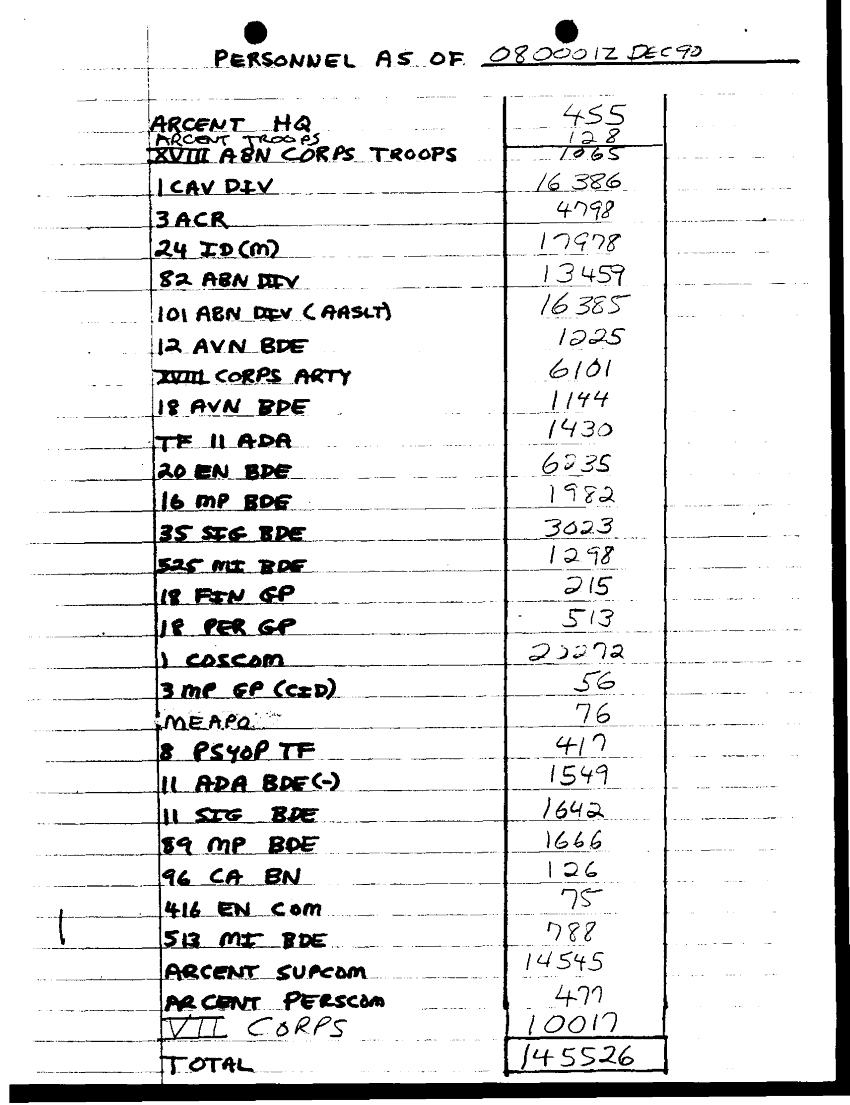 PERSONNEL AS OF 080001Z DEC 90
ARCENT HQ 455
ARCENT TROOPS 128
XVIII ABN CORPS TROOPS 1065
1 CAV DIV 16386
3 ACR 4798
24 ID (M) 17978
82 ABN DIV 13459
101 ABN DIV (AASLT) 16385
12 AVN BDE 1225
XVIII CORPS ARTY 6101
18 AVN BDE 1144
TF 11 ADA 1430
20 EN BDE 6235
16 MP BDE 1982
35 SIG BDE 3023
525 MI BDE 1298
18 FIN GP 215
18 PER GP 513
1 COSCOM 20272
3 MP GP (CID) 56
MEAPO 76
8 PSYOP TF 417
11 ADA BDE (-) 1549
11 SIG BDE 1642
89 MP BDE 1666
96 CA BN 126
416 EN COM 75
513 MI BDE 788
ARCENT SUPCOM 14545
ARCENT PERSCOM 477
VII CORPS 10017
TOTAL 145526